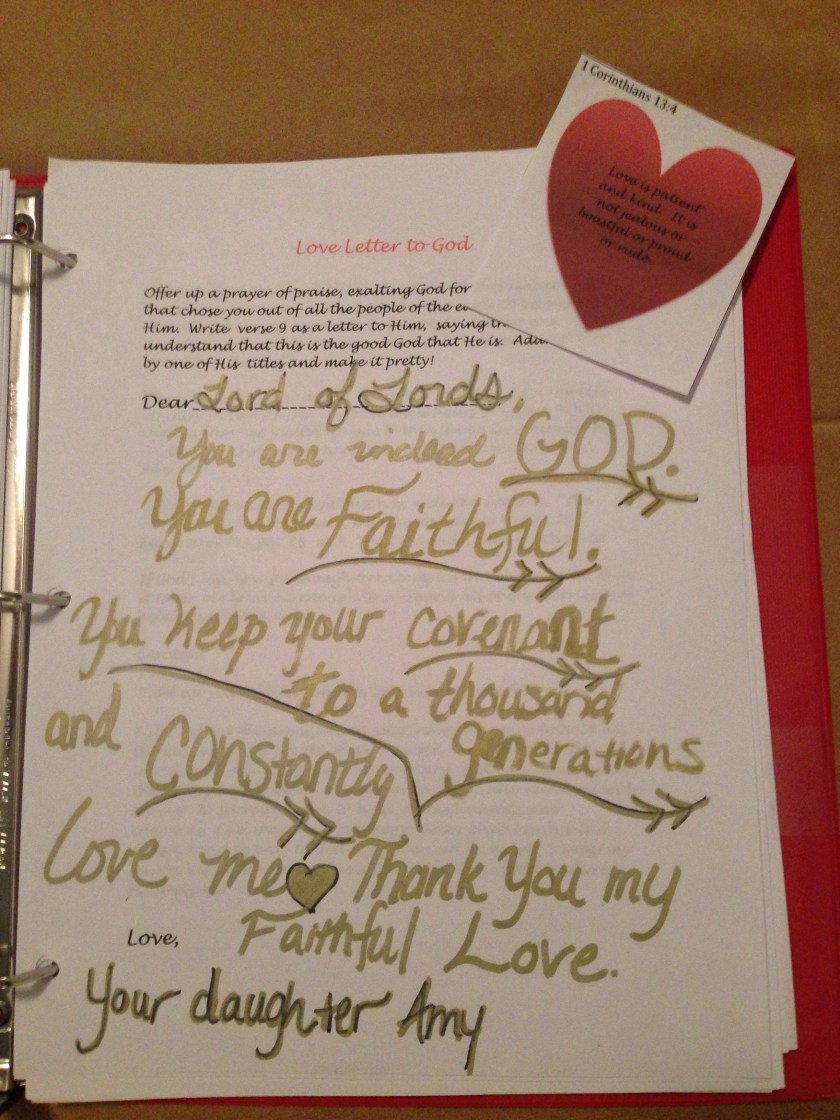 1 Corinthians 13:4
Love is patient
and kind. It is
not jealous or
boastful or proud
or rude.
Love Letter to God
Offer up a prayer of praise, exalting God for
that chose you out of all the people of the
Him. Write verse 9 as a letter to Him, saying
understand that this is the good God that He is.
by one of His titles and make it pretty!
Dear Lord of Lords,
You are indeed GOD.
You are Faithful.
You keep your covenant
to a thousand
generations
and Constantly
Love me Thank You my
Faithful Love.
Love,
Your daughter Amy